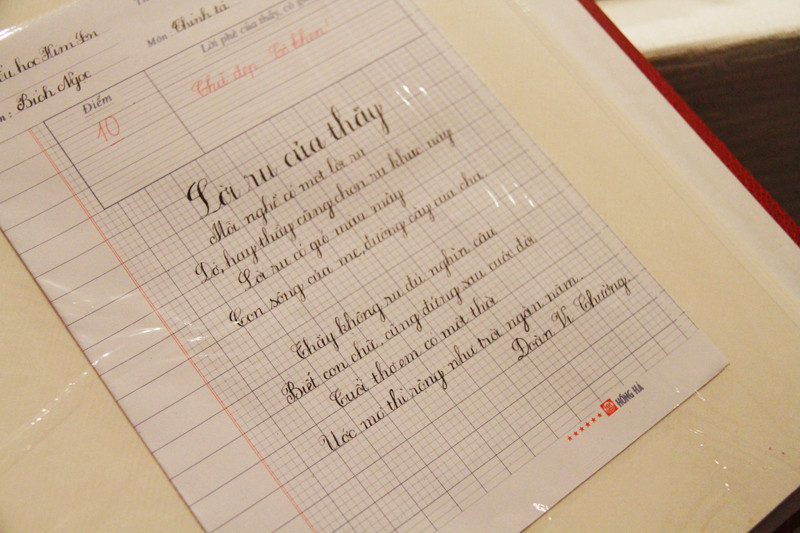 ểu học Kim Sơn
n: Bích Ngọc
Môn Chính tả
Lời phê của thầy, cô gi
Điểm
10
Chữ đẹp Cô khen!
Lời ru của thầy
Mỗi nghề có một lời ru
Dở, hay thầy cũng chọn ru khúc này
Lời ru có gió màu mây
Con sông của mẹ, đường cày của cha
Thầy không ru đủ nghìn câu
Biết con chữ cũng đứng sau cuộc đời
Tuổi thơ em có một thời
Ước mơ thì rộng như trời ngàn năm.
Đoàn Vị Thượng
HỒNG HÀ